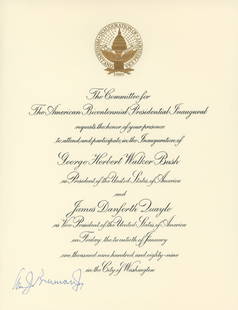 1989
The Committee for
The American Bicentennial Presidential Inaugural
requests the honor of your presence
to attend and participate in the Inauguration of
George Herbert Walker Bush
as President of the United States of America
and
James Danforth Quayle
as Vice President of the United States of America
on Friday the twentieth of January
one thousand nine hundred and eighty-nine
in the City of Washington